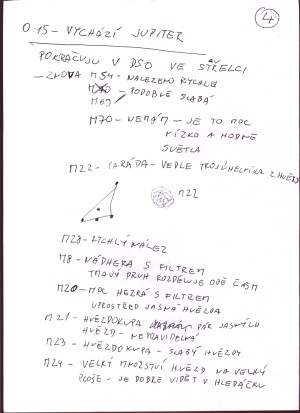 4
0:15 – VYCHÁZÍ JUPITER
POKRAČUJU V DSO VE STŘELCI
– ZNOVA M54 – NALEZENO RYCHLE
M69 – PODOBNĚ SLABÁ
M70 – NEMÁM – JE TO MOC
NÍZKO A HODNĚ
SVĚTLA
M22 – PARÁDA – VEDLE TROJÚHELNÍKA Z HVĚZD
M22
M28 – RYCHLÝ NÁLEZ
M8 – NÁDHERA S FILTREM
TMAVÝ PRUH ROZDĚLUJE OBĚ ČÁSTI
M20 – MOC HEZKÁ S FILTREM
UPROSTŘED JASNÁ HVĚZDA
M21 – HVĚZDOKUPA PÁR JASNÝCH
HVĚZD – NEPRAVIDELNÁ
M23 – HVĚZDOKUPA – SLABÝ HVĚZDY
M24 – VELKÝ MNOŽSTVÍ HVĚZD NA VELKÝ
PLOŠE – JE DOBŘE VIDĚT V HLEDÁČKU